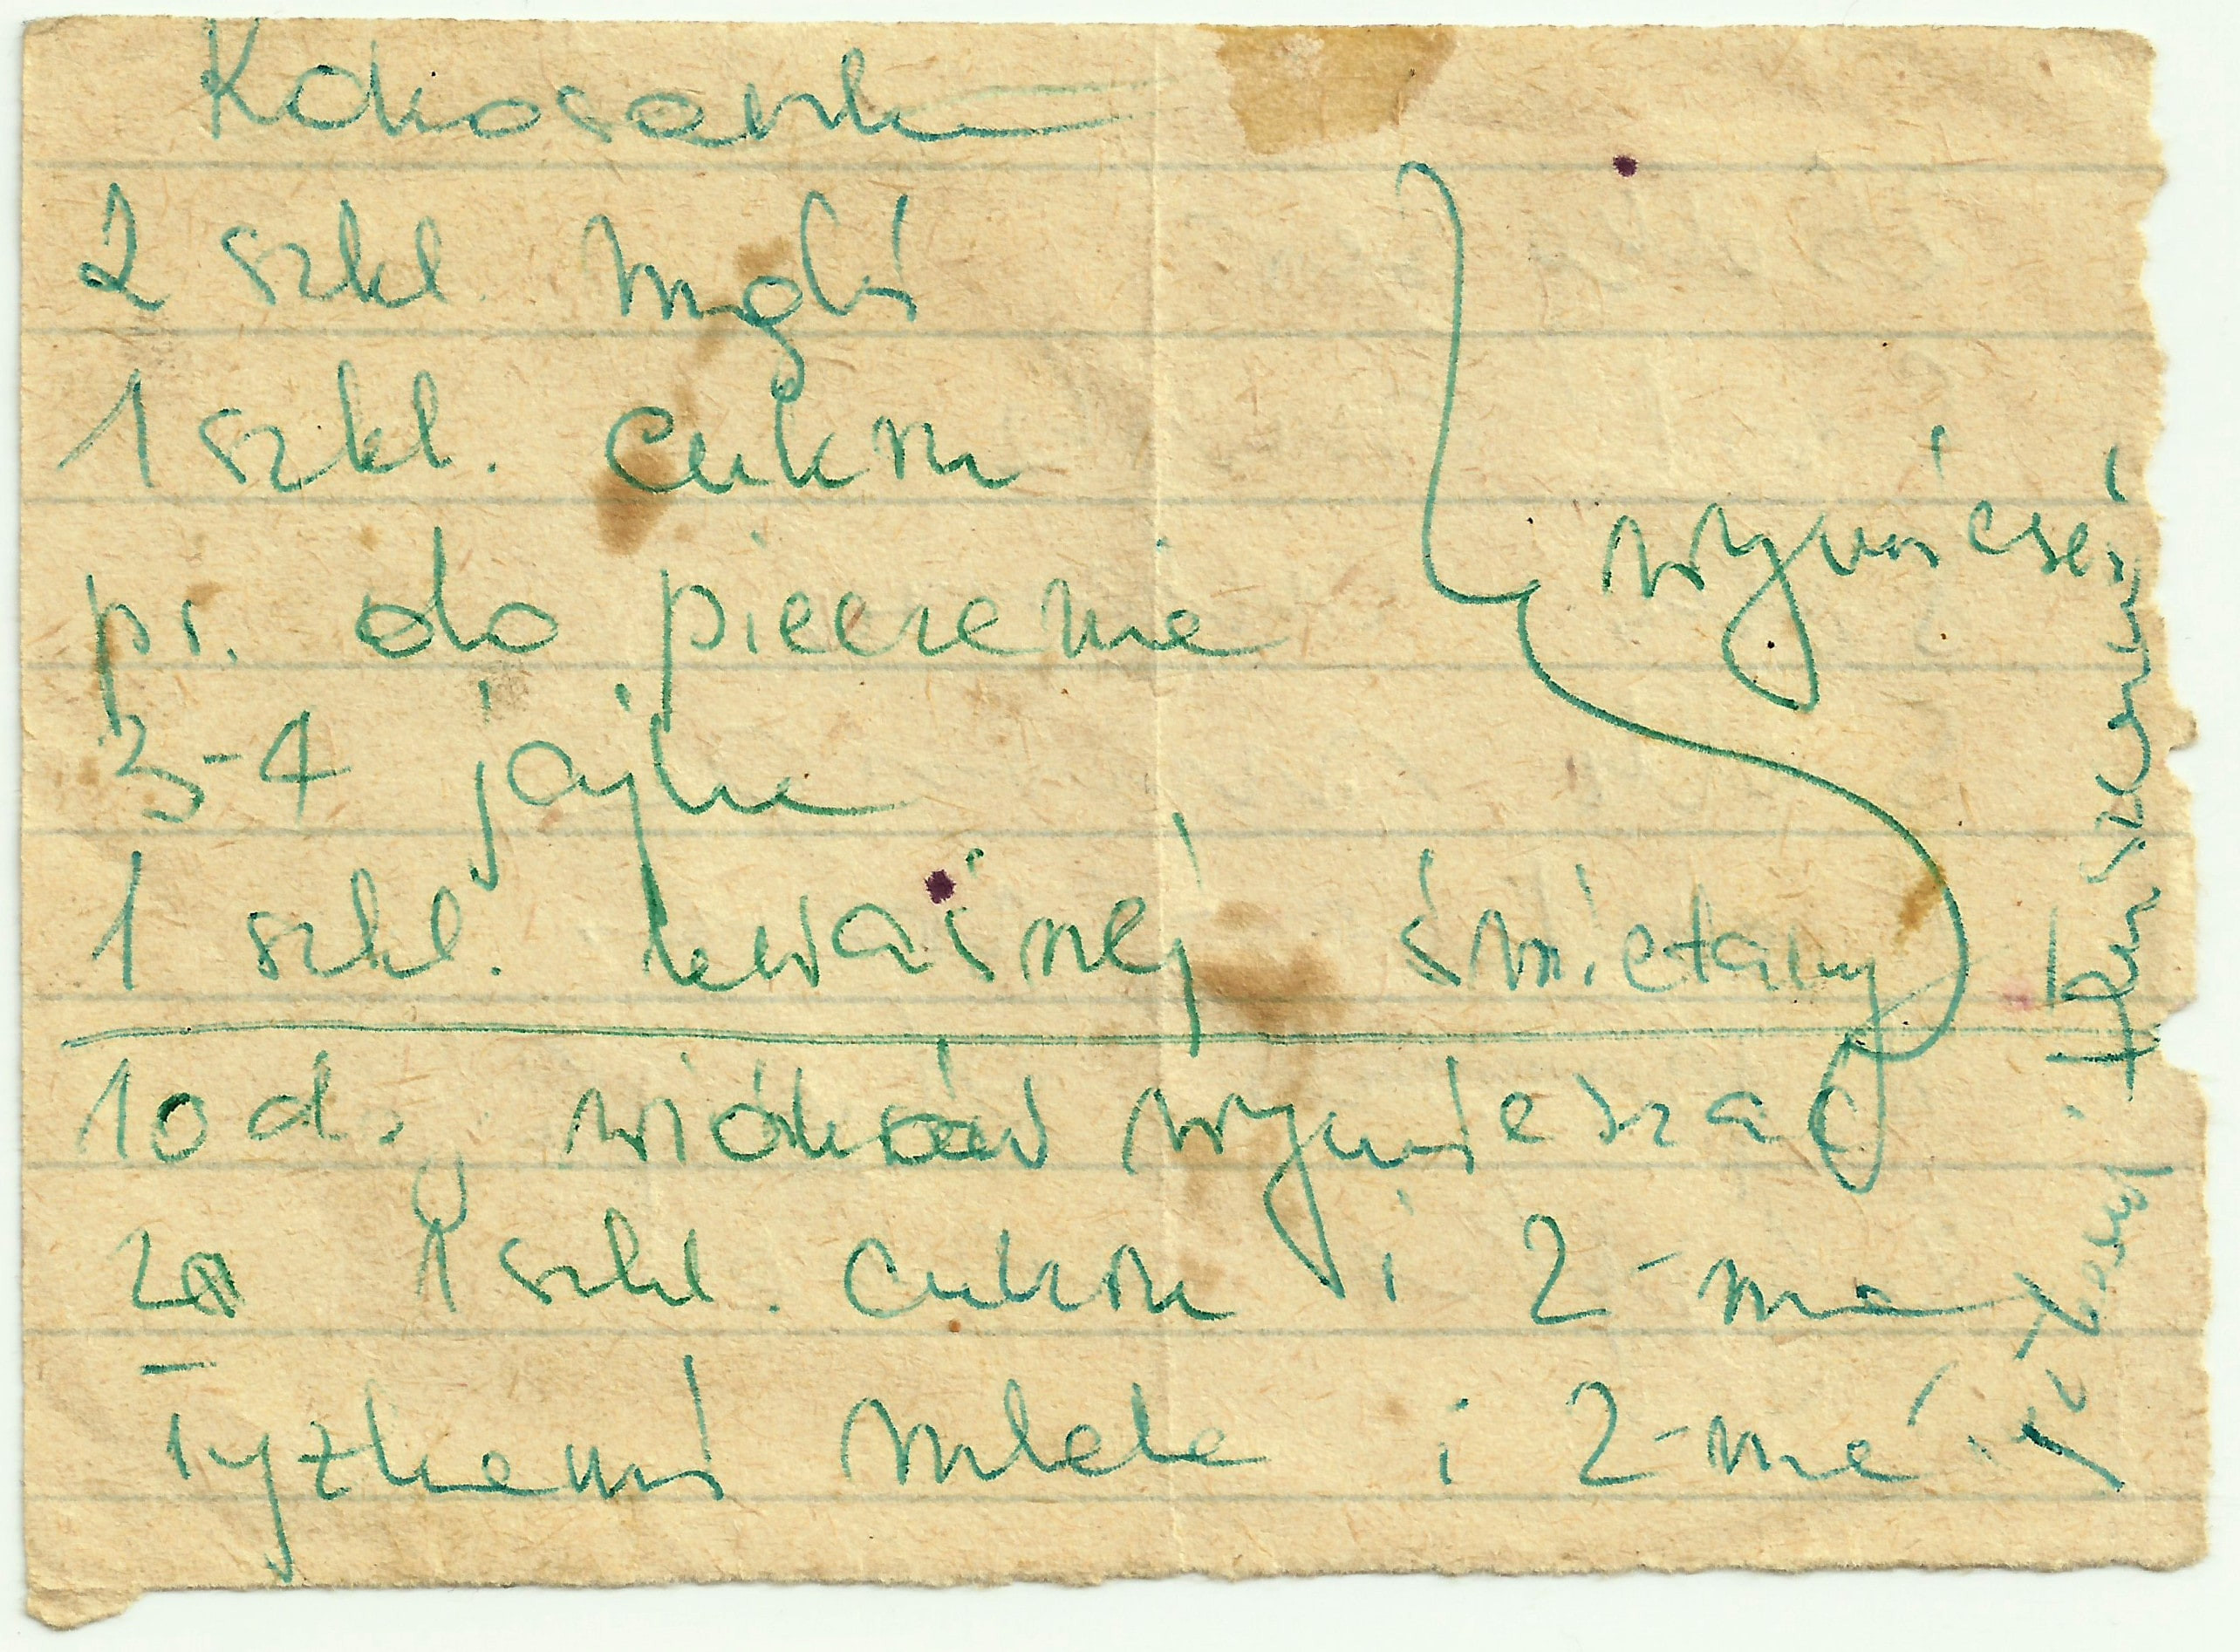 Kokosanka
2 szkl. mąki
1 szkl. cukru
pr. do pieczenia
3-4 jajka
1 szkl. kwaśnej śmietany
wymieszać
10 dg wiórków wymieszać
za 1 szkl. cukru i 2-ma
łyżkami mleka i 2-ma
łyżkami